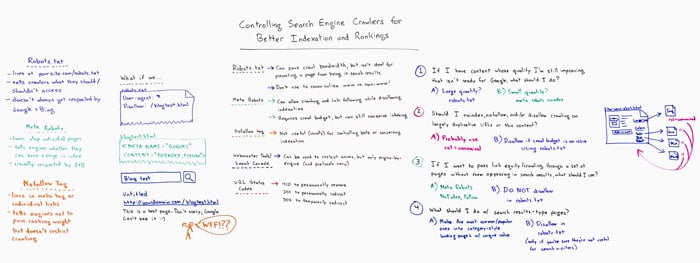 Controlling Search Engine Crawlers for
Better Indexation and Rankings
Robots.txt
- lives at yoursite.com/robots.txt
- tells crawlers what they should/
shouldn't access
- doesn't always get respected by
Google + Bing
Meta Robots
- lives in individual pages
- tells engines whether they
can keep a page in index
- usually respected by
Nofollow Tag
- lives in meta tag or
individual links
- tells engines not to
pass ranking weight
but doesn't restrict
crawling
What if we...
robots.txt
User-agent: *
Disallow: /blogtest.html
blogtest.html
<META NAME="ROBOTS"
CONTENT="NOINDEX,
Blog test
Untitled
http://yourdomain.com/blogtest.html
This is a test page. Don't worry, Google
Can't see it :-)
WTF!??
Robots.txt → Can save crawl bandwidth, but isn't ideal for
preventing a page from being in search results.
→ Don't use to canonicalize
Meta Robots → Can allow crawling and link following while disallowing
indexation
→ Requires crawl budget, but can still conserve indexing
Nofollow tag → Not useful for controlling bots or conserving
indexation
Webmaster Tools/
Search Console → Can be used to restrict access, but only engine-by-
engine
URL Status
Codes → 410 to permanently remove
301 to permanently redirect
302 to temporarily redirect
1 If I have content whose quality I'm still improving
that isn't ready for Google, what should I do?
A) Large quantity?
robots.txt
B) Small quantity?
meta robots noindex
2 Should I noindex, nofollow, and/or disallow crawling on
largely duplicative URLs or thin content?
A) Probably use
rel=canonical
B) Disallow if crawl budget is an issue
using robots.txt
3 If I want to pass link equity/crawling through a set of
pages without them appearing in search results, what should I use?
A) Meta Robots
NoIndex, Follow
B) DO NOT disallow
in robots.txt
4 What should I do w/ search results-type pages?
A) Make the most common/popular
ones into category-style
landing pages w/ unique value
B) Disallow in
robots.txt
(only if you're sure they're not useful
for search visitors)
rel=canonical